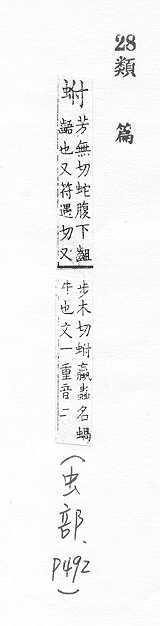 28
類篇
蚹
芳無切蛇腹下齟
齬也又符遇切又
步木切蚹蠃蟲名蝸
牛也文一重音二
(虫部.
P492)